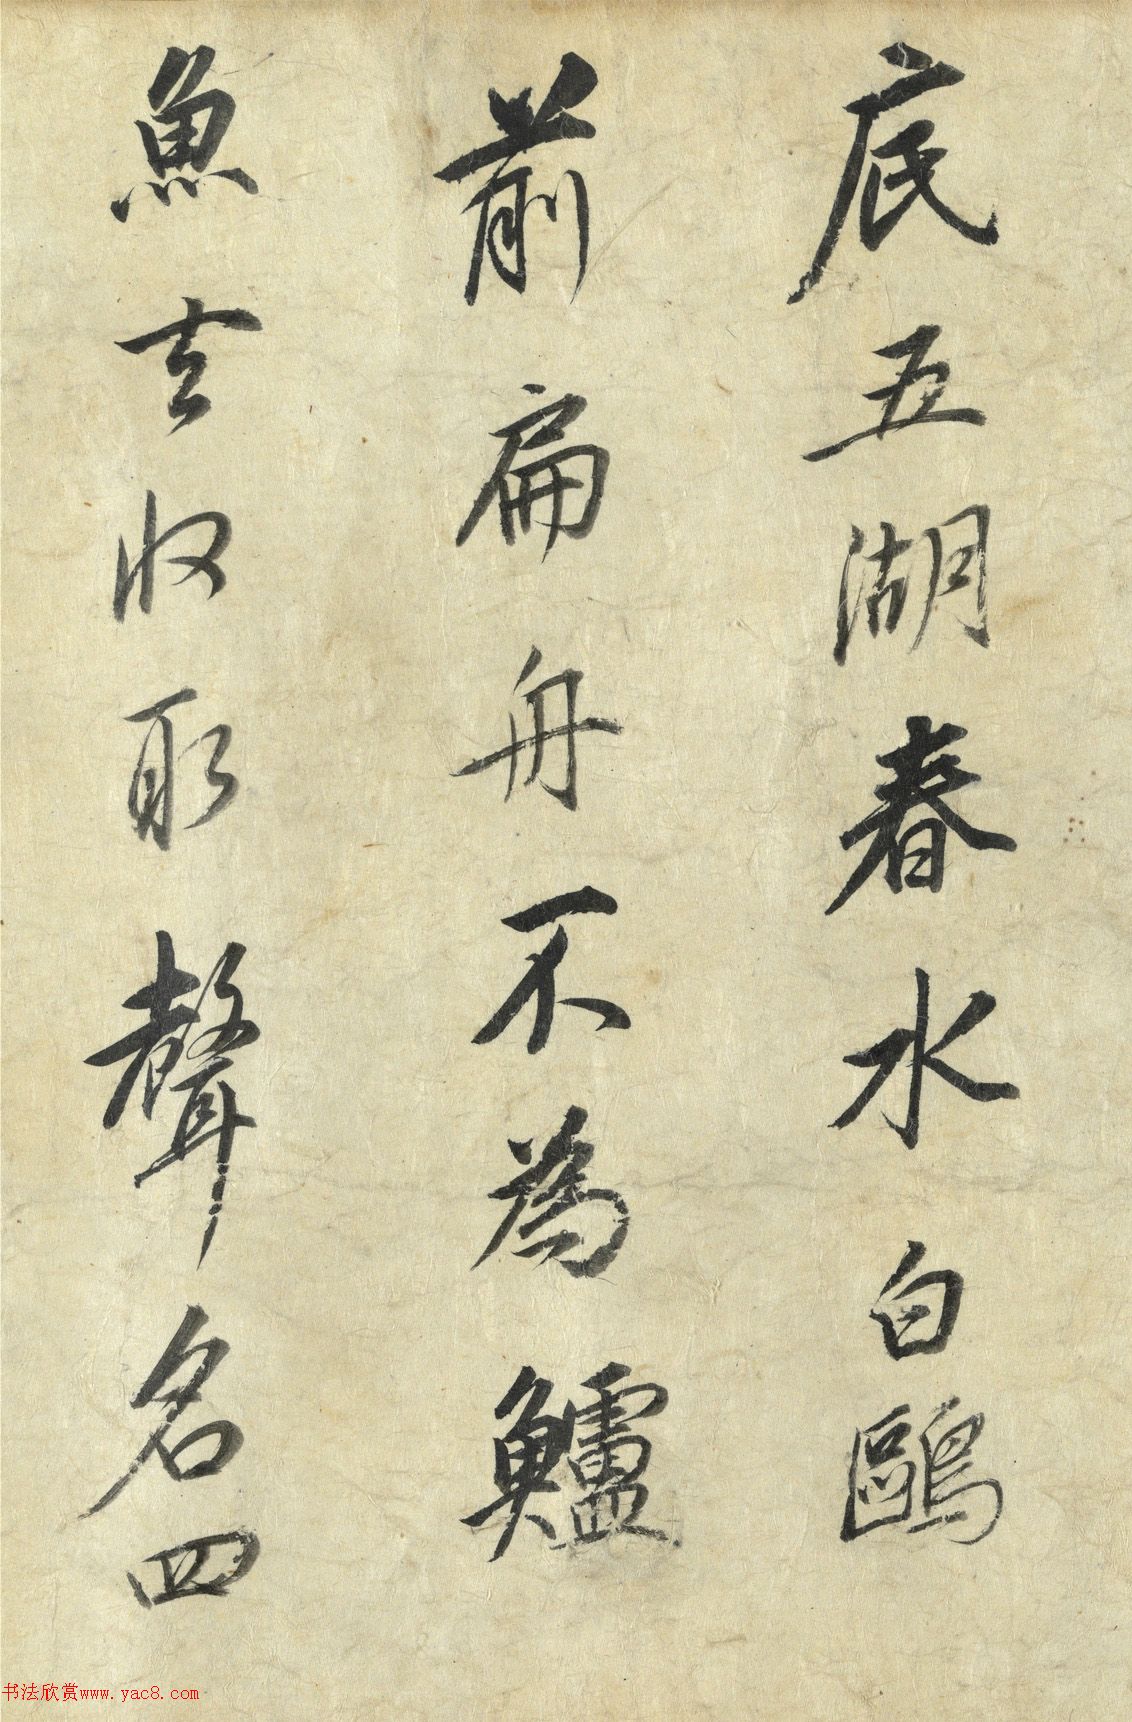 底五湖春水白鷗
前扁舟不為鱸
魚去收取聲名四
书法欣赏www.yac8.com